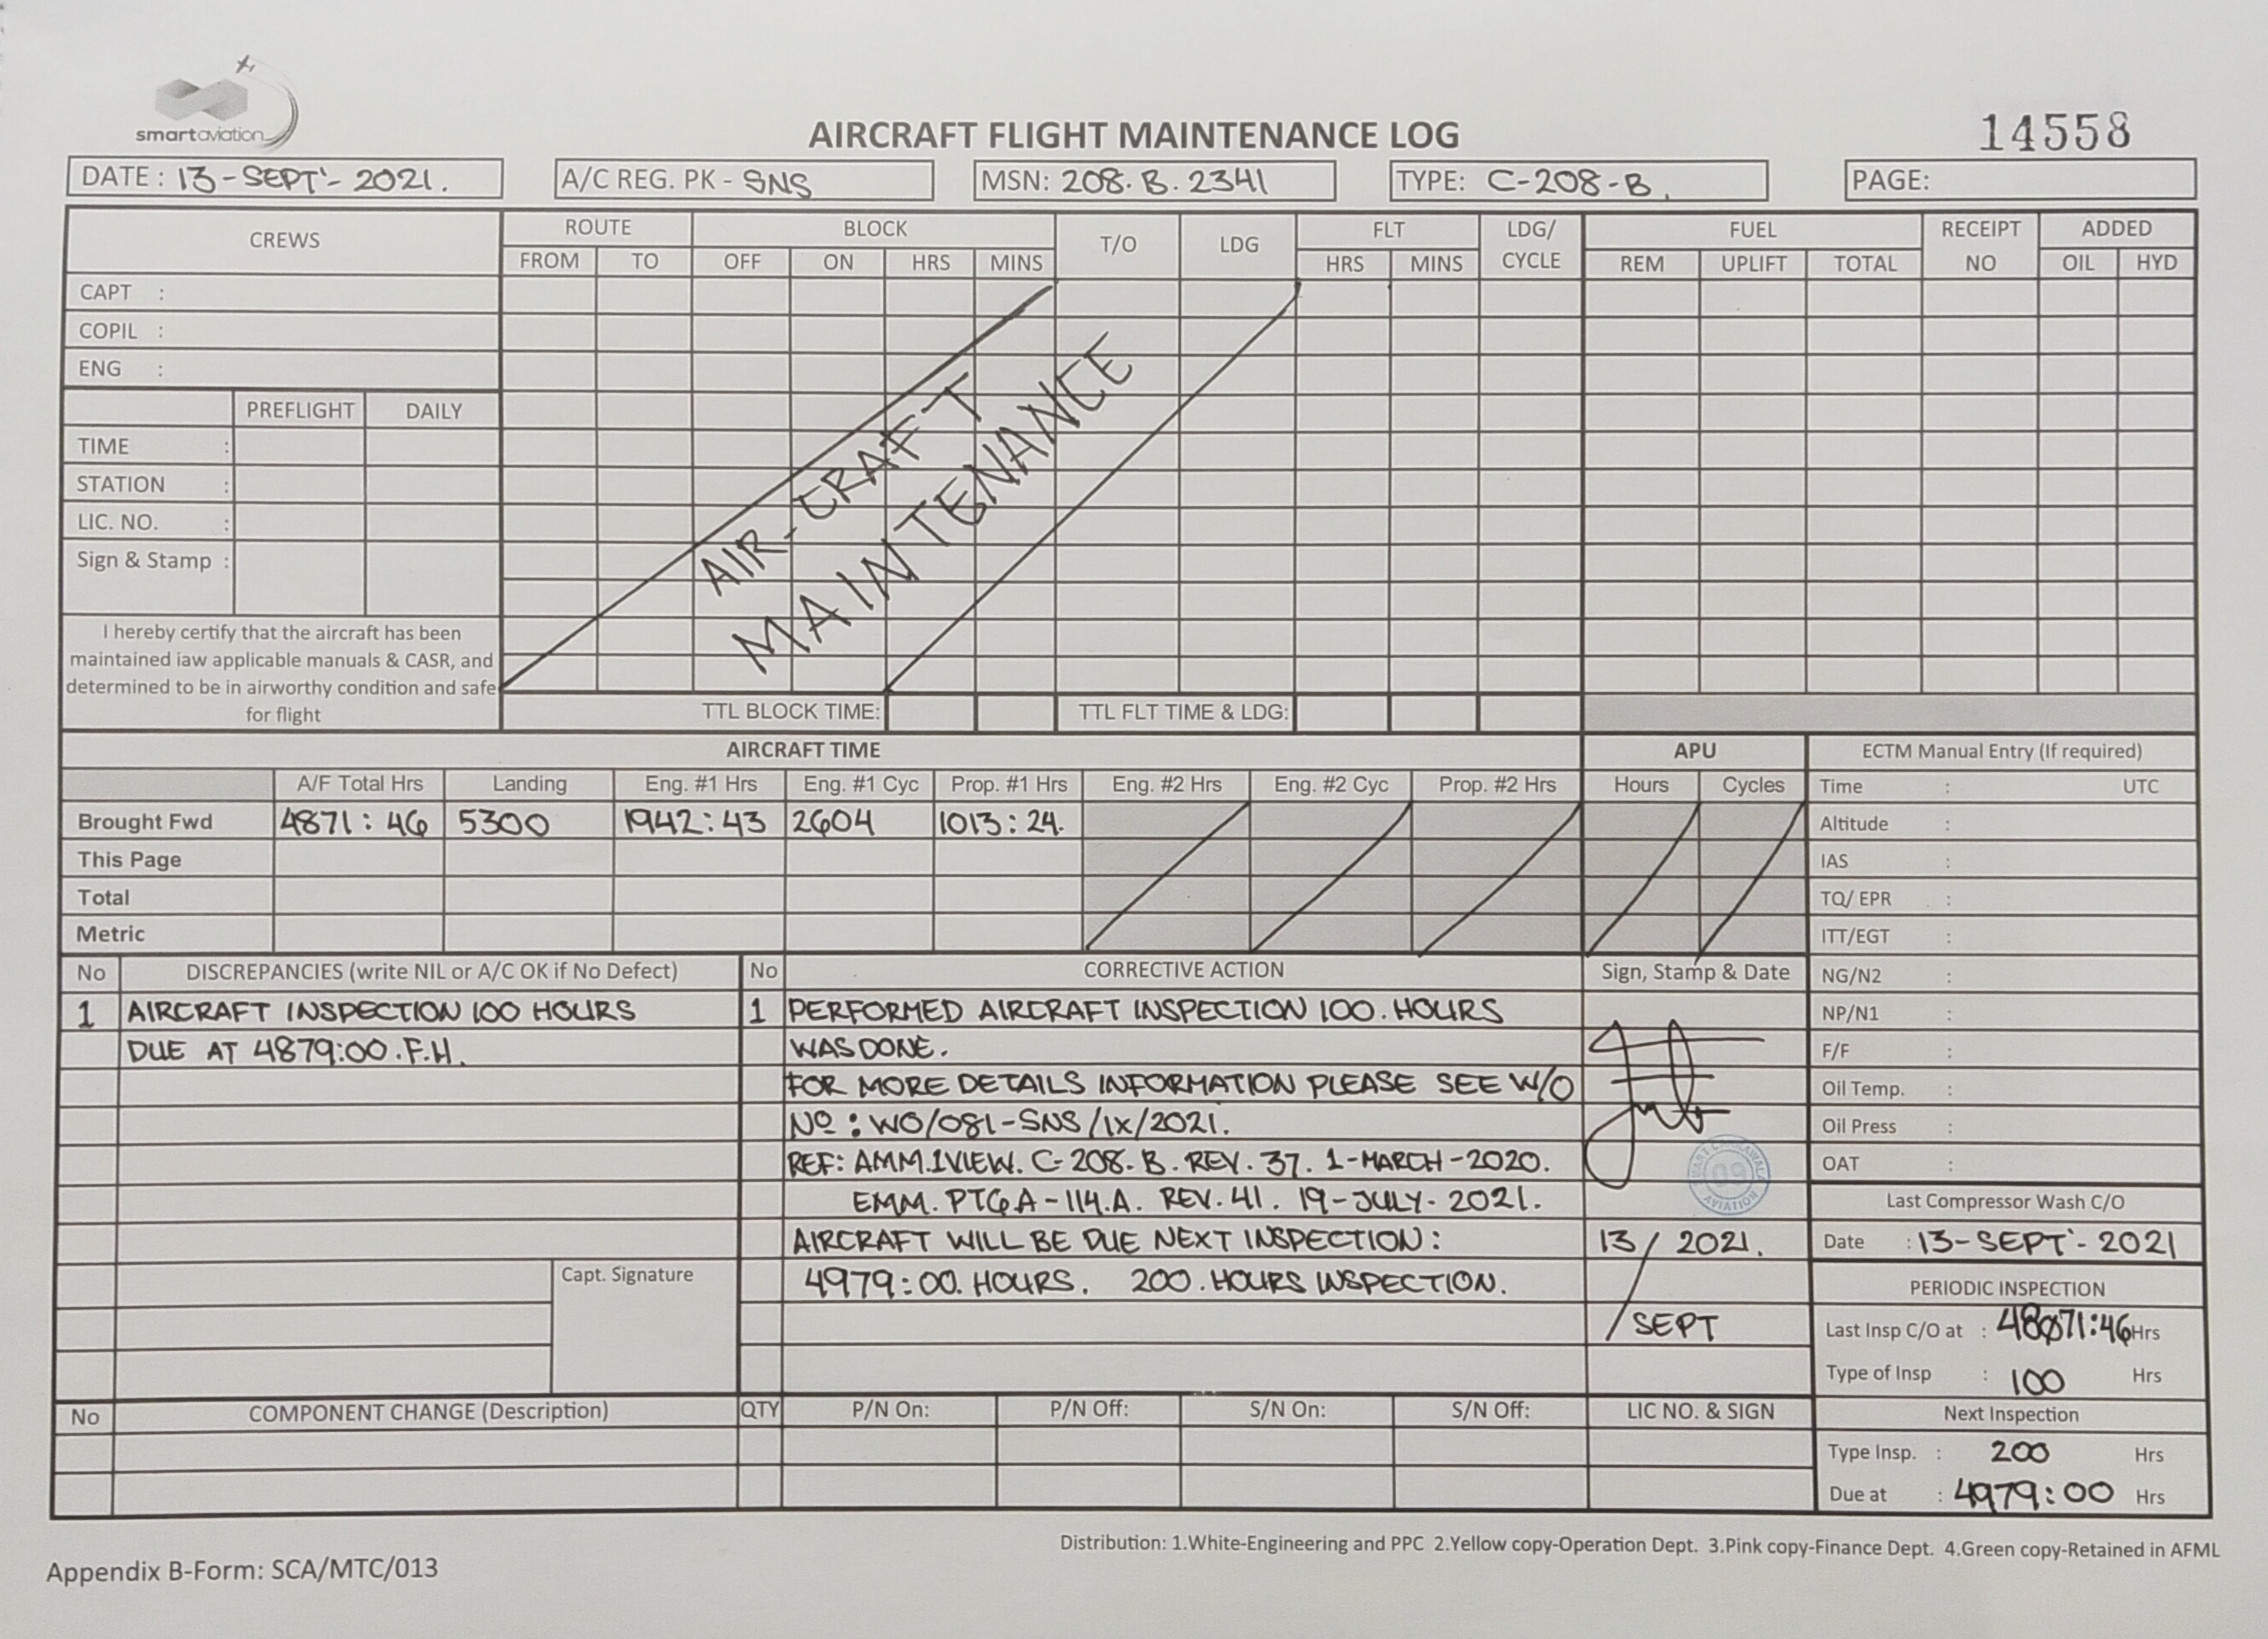 smartaviation
AIRCRAFT FLIGHT MAINTENANCE LOG
14558
DATE : 13-SEPT'- 2021.
A/C REG. PK - SNS
MSN: 208. B. 2341
TYPE: C-208-B.
PAGE:
CREWS
ROUTE BLOCK T/O LDG FLT LDG/ CYCLE FUEL RECEIPT NO ADDED
FROM TO OFF ON HRS MINS HRS MINS REM UPLIFT TOTAL OIL HYD
CAPT :
COPIL :
ENG :
PREFLIGHT DAILY
TIME :
STATION :
LIC. NO. :
Sign & Stamp :
AIR-CRAFT
MAINTENANCE
I hereby certify that the aircraft has been
maintained iaw applicable manuals & CASR, and
determined to be in airworthy condition and safe
for flight
TTL BLOCK TIME: TTL FLT TIME & LDG:
AIRCRAFT TIME APU ECTM Manual Entry (If required)
A/F Total Hrs Landing Eng. #1 Hrs Eng. #1 Cyc Prop. #1 Hrs Eng. #2 Hrs Eng. #2 Cyc Prop. #2 Hrs Hours Cycles
Brought Fwd 4871:46 5300 1942:43 2604 1013:24.
This Page
Total
Metric
Time : UTC
Altitude :
IAS :
TQ/ EPR :
ITT/EGT :
NG/N2 :
NP/N1 :
F/F :
Oil Temp. :
Oil Press :
OAT :
No DISCREPANCIES (write NIL or A/C OK if No Defect)
1 AIRCRAFT INSPECTION 100 HOURS
DUE AT 4879:00.F.H.
Capt. Signature
No CORRECTIVE ACTION Sign, Stamp & Date
1 PERFORMED AIRCRAFT INSPECTION 100. HOURS
WAS DONE.
FOR MORE DETAILS INFORMATION PLEASE SEE W/O
No : WO/081-SNS/IX/2021.
REF: AMM.1VIEW. C-208. B. REV. 37. 1-MARCH-2020.
EMM. PT6A-114.A. REV. 41. 19-JULY-2021.
AIRCRAFT WILL BE DUE NEXT INSPECTION:
4979:00. HOURS. 200. HOURS INSPECTION.
09
AVIATION
13/ 2021.
/ SEPT
Last Compressor Wash C/O
Date : 13-SEPT'- 2021
PERIODIC INSPECTION
Last Insp C/O at : 48071:46 Hrs
Type of Insp : 100 Hrs
Next Inspection
Type Insp. : 200 Hrs
Due at : 4979:00 Hrs
No COMPONENT CHANGE (Description) QTY P/N On: P/N Off: S/N On: S/N Off: LIC NO. & SIGN
Distribution: 1.White-Engineering and PPC 2.Yellow copy-Operation Dept. 3.Pink copy-Finance Dept. 4.Green copy-Retained in AFML
Appendix B-Form: SCA/MTC/013